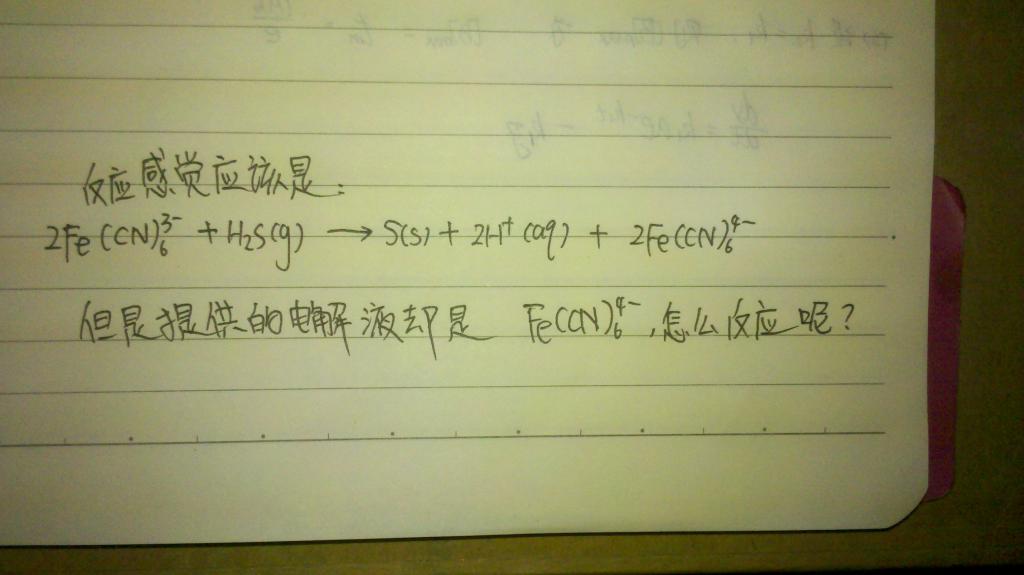 反应感觉应该是：
2Fe(CN)₆³⁻ + H₂S(g) ⟶ S(s) + 2H⁺(aq) + 2Fe(CN)₆⁴⁻
但是提供的电解液却是 Fe(CN)₆⁴⁻,怎么反应呢？